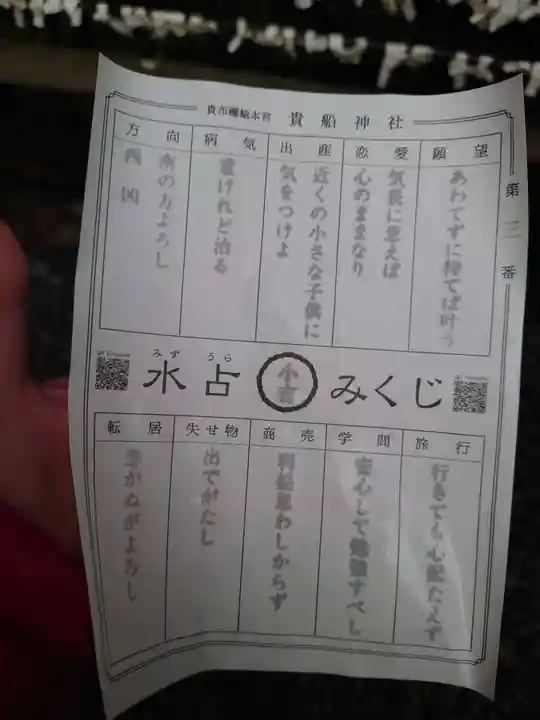 貴布禰総本宮 貴船神社
第三番
願望
あわてずに待てば叶う
恋愛
気長に思えば
心のままなり
出産
近くの小さな子供に
気をつけよ
病気
重けれど治る
方向
南の方よろし
西 凶
みず うら
水占 小吉 みくじ
旅行
行きても心配たえず
学問
安心して勉強すべし
商売
利益思わしからず
失せ物
出でがたし
転居
急がぬがよろし